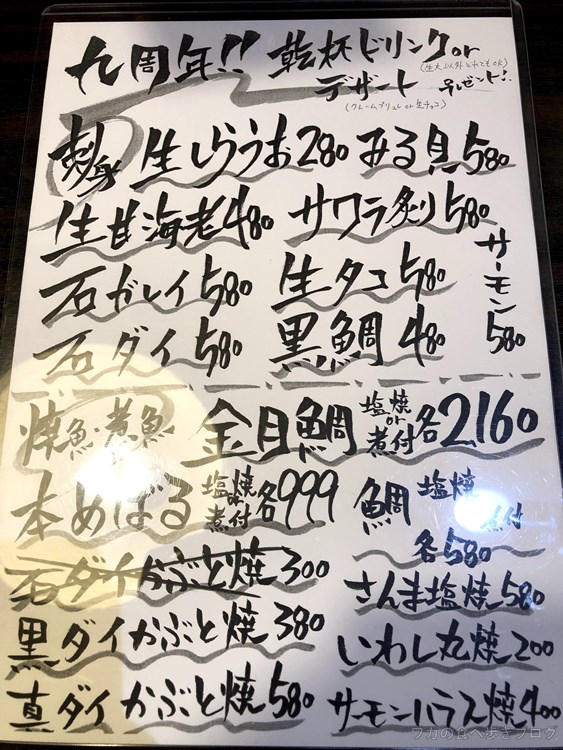 九周年!! 乾杯ドリンクor
(生大以外どれでもok)
デザート プレゼント!
(クレームブリュレ or 生チョコ)
刺身 生しらうお280 みる貝580
生甘海老480 サワラ炙り580
石ガレイ580 生タコ580 サーモン580
石ダイ580 黒鯛480
焼魚・煮魚 金目鯛 塩焼or煮付 各2,160
本めばる 塩焼or煮付 各999 鯛 塩焼 煮付
各580
石ダイかぶと焼300 さんま塩焼580
黒ダイかぶと焼380 いわし丸焼200
真ダイかぶと焼580 サーモンハラス焼400
ワカの食べ歩きブログ